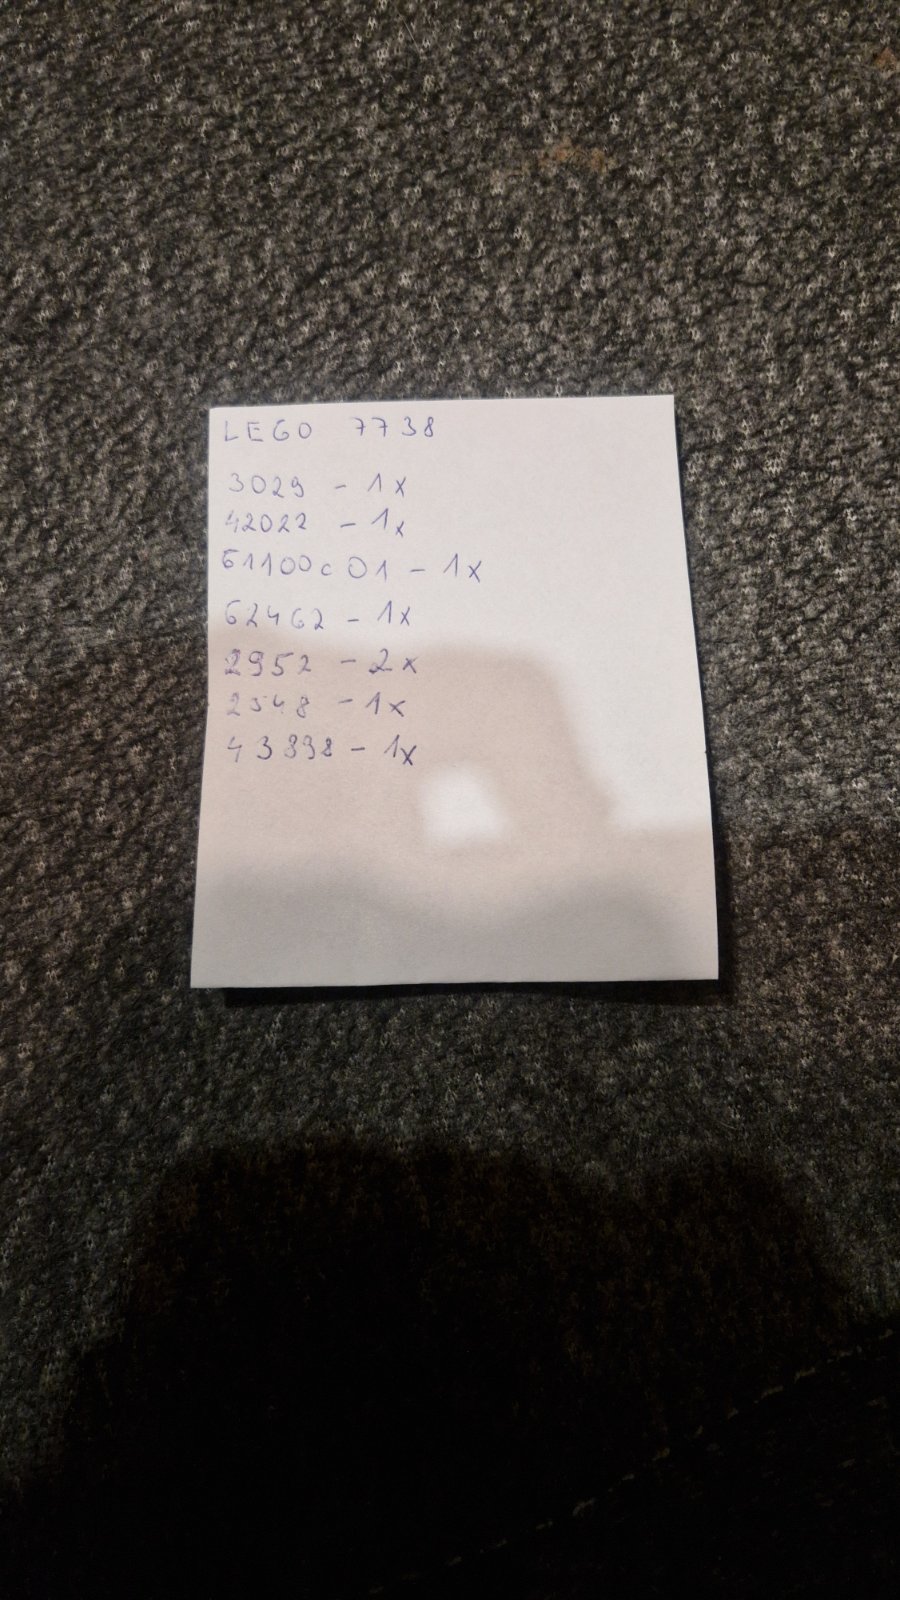 LEGO 7738
3029 - 1x
42022 - 1x
61100c01 - 1x
62462 - 1x
2952 - 2x
2548 - 1x
43898 - 1x